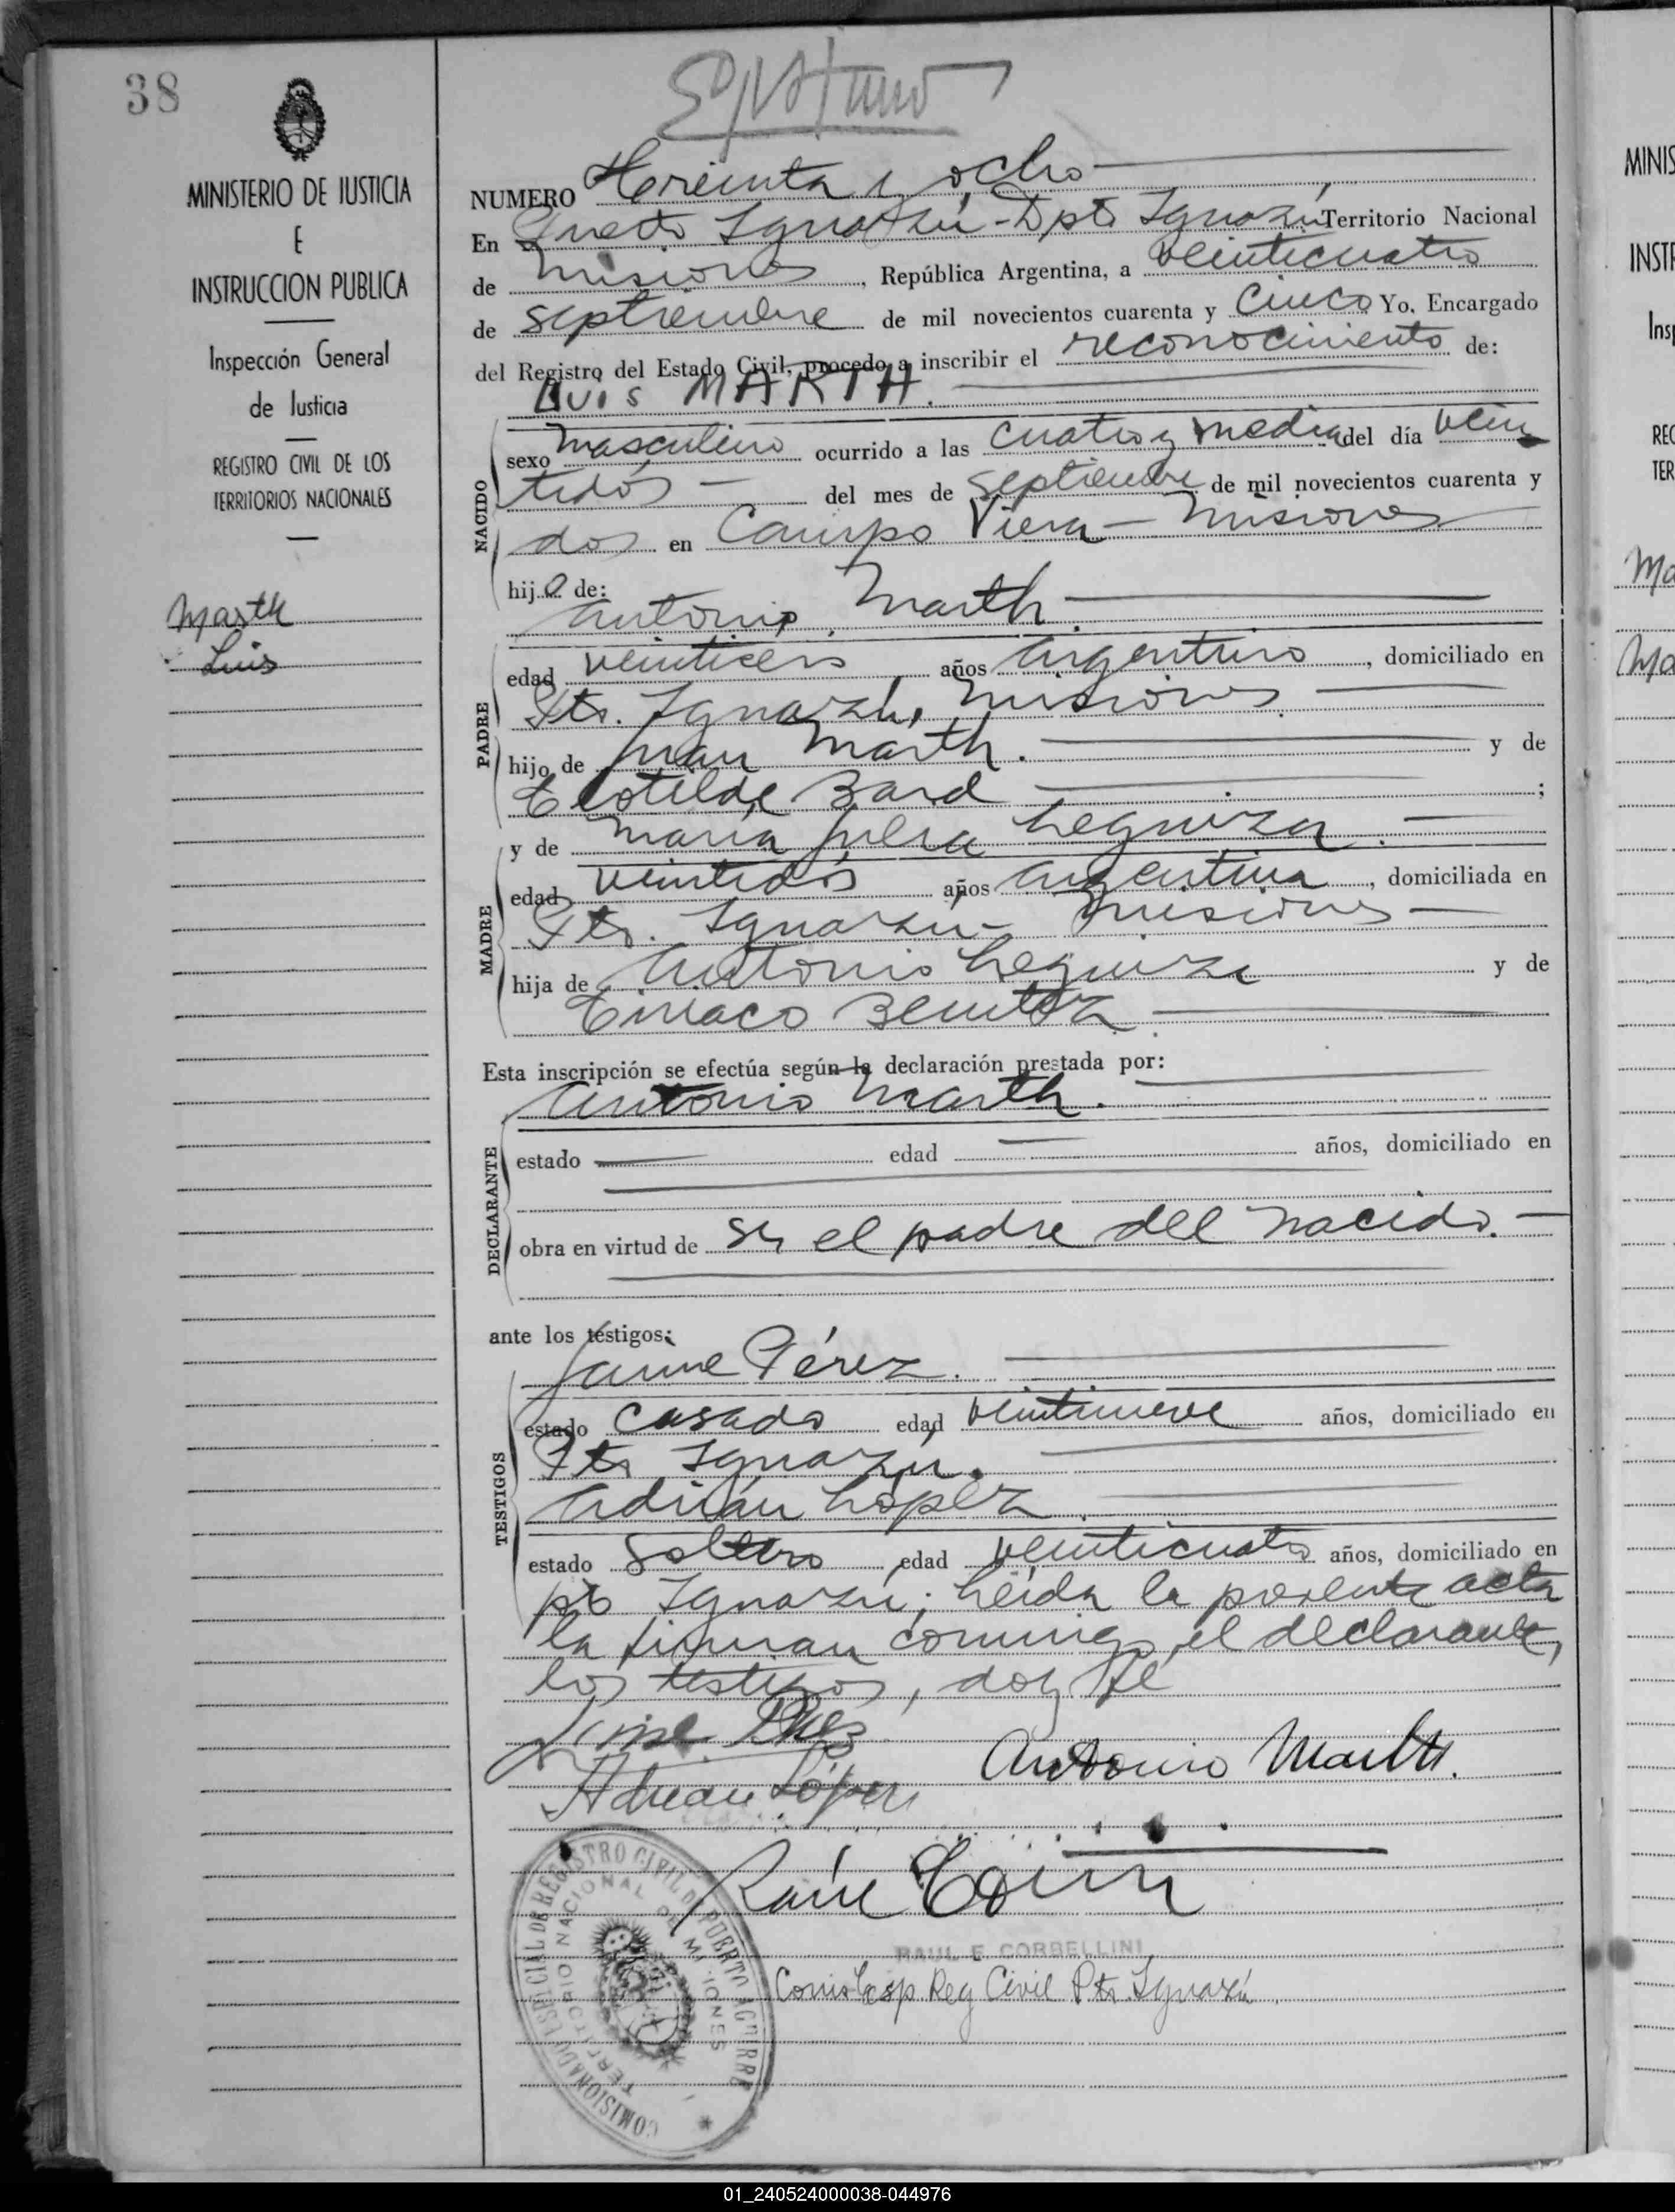 38
MINISTERIO DE JUSTICIA
E
INSTRUCCION PUBLICA
Inspección General
de Justicia
REGISTRO CIVIL DE LOS
TERRITORIOS NACIONALES
Marth
Luis
NUMERO treinta y ocho
En Puerto Iguazú - Dpto Iguazú Territorio Nacional
de Misiones, República Argentina, a veinticuatro
de septiembre de mil novecientos cuarenta y cinco Yo, Encargado
del Registro del Estado Civil, procedo a inscribir el reconocimiento de:
Luis MARTH.
NACIDO
sexo masculino ocurrido a las cuatro y media del día vein
tidós - del mes de septiembre de mil novecientos cuarenta y
dos en Campo Viera - Misiones
hijo de:
Antonio Marth
PADRE
edad veinticeis años argentino, domiciliado en
Pto. Iguazú, Misiones
hijo de Juan Marth. y de
Clotilde Bard;
MADRE
y de María Julia Leguiza.
edad veintidós años argentina, domiciliada en
Pto. Iguazú - Misiones -
hija de Antonio Leguiza y de
Ciriaco Benitez
Esta inscripción se efectúa según la declaración prestada por:
Antonio Marth.
DECLARANTE
estado edad años, domiciliado en
obra en virtud de ser el padre del nacido. -
ante los testigos:
TESTIGOS
Jaime Pérez.
estado casado edad veintinueve años, domiciliado en
Pto Iguazú.
Adrián López.
estado soltero edad veinticuatro años, domiciliado en
pto Iguazú; leída la presente acta
la firman conmigo el declarante,
los testigos, doy fé
Antonio Marth.
Adrian López
RAUL E. CORBELLINI
Comis Esp. Reg Civil Pto. Iguazú
COMISIONADO ESPECIAL DE REGISTRO CIVIL DE PUERTO AGUIRRE
TERRITORIO NACIONAL DE MISIONES
MINIS
INSTR
Insp
REG
TER
Ma
Ma
01_240524000038-044976